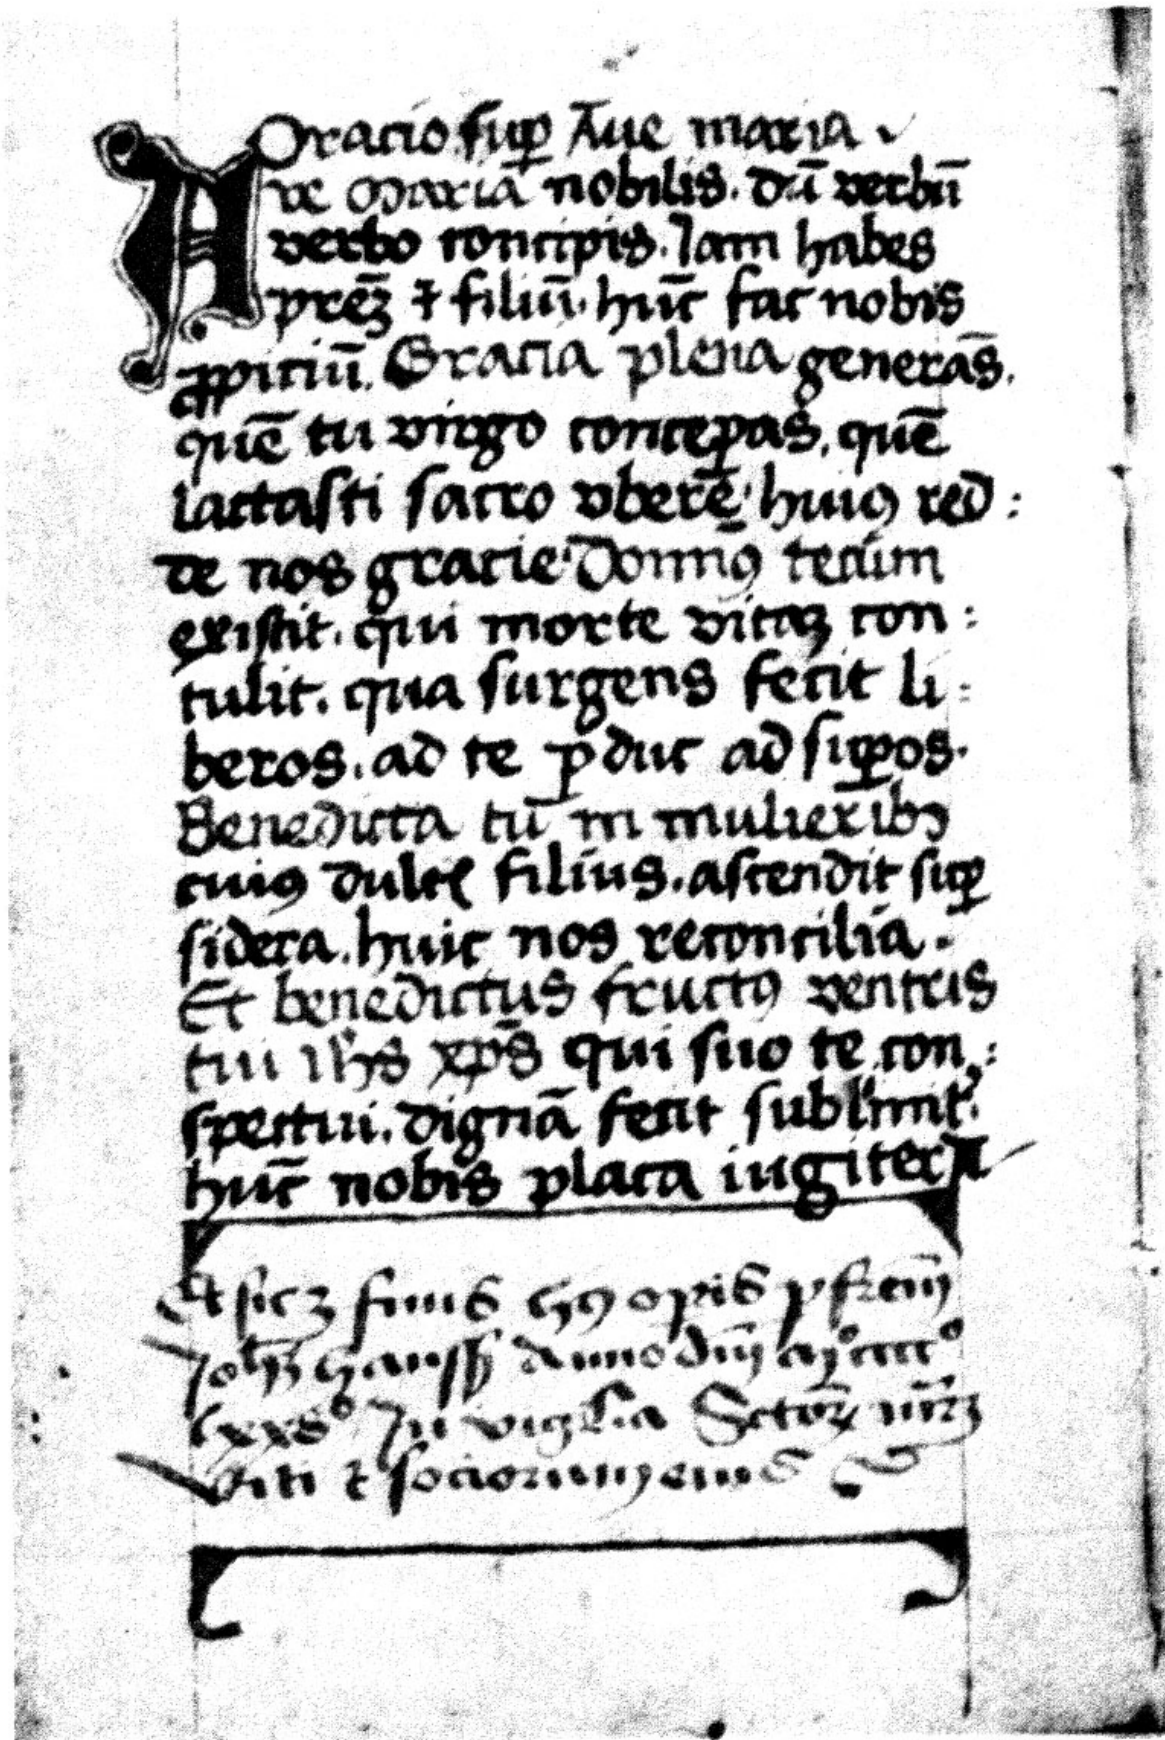 Oracio sup Aue maria
Aue Maria nobilis. dū verbū
verbo concipis. Iam habes
prēʒ ⁊ filiū. hūc fac nobis
ꝓpiciū. Gracia plena generās.
quē tu virgo conceꝑas, quē
lactasti sacro vbere. huiꝰ red:
de nos gracie. Domnꝰ tecum
existit. qui morte vitaʒ con:
tulit. qua surgens fecit li:
beros. ad te ꝑduc ad suꝑos.
Benedicta tū in mulieribꝰ
cuiꝰ dulcꝭ filius. ascendit suꝑ
sidera. huic nos reconcilia.
Et benedictus fructꝰ ventris
tui ihs xp̄s qui suo te con:
spectui. dignā fecit sublimit᷑.
hūc nobis placa iugiter
Et sic ʒ finis hꝰ opis p frēm
Joh anno dm̄ mº ccccº
lxxsº In vigilia Sctorꝝ mr̄ʒ
Viti ⁊ sociorum eius